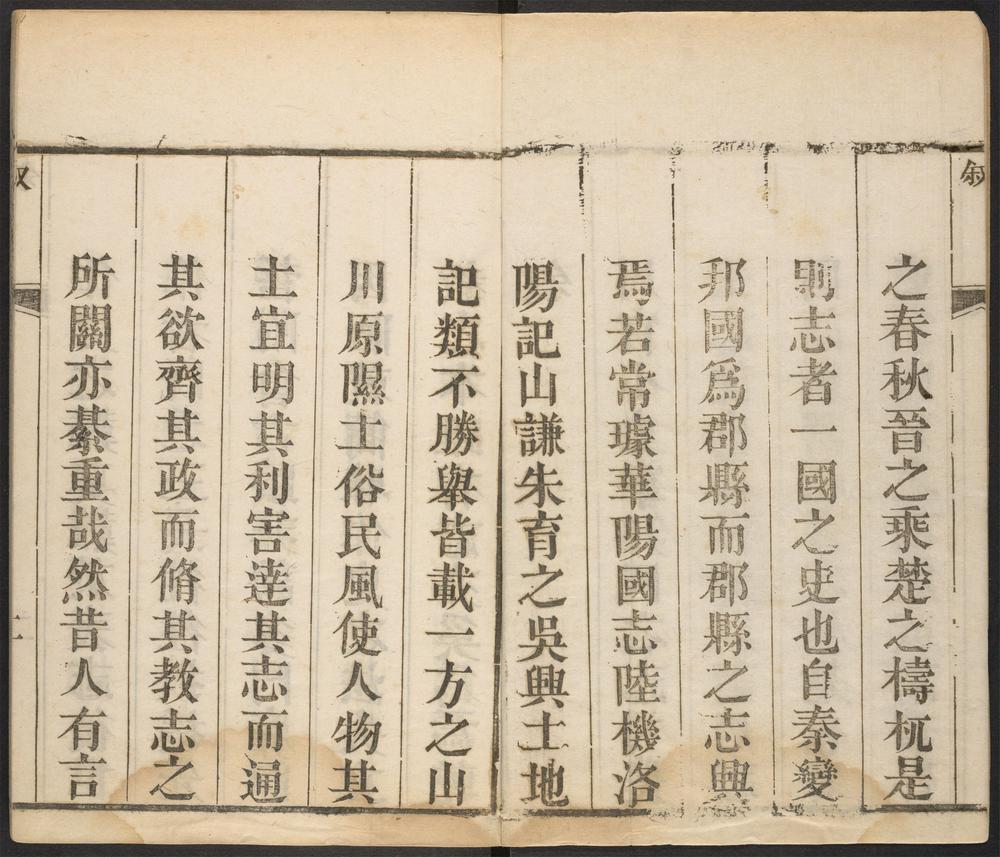 叙
之春秋晉之乘楚之檮杌是
則志者一國之史也自秦變
邦國爲郡縣而郡縣之志興
焉若常璩華陽國志陸機洛
陽記山謙朱育之吳興土地
記類不勝舉皆載一方之山
川原隰土俗民風使人物其
土宜明其利害達其志而通
其欲齊其政而脩其教志之
所關亦綦重哉然昔人有言